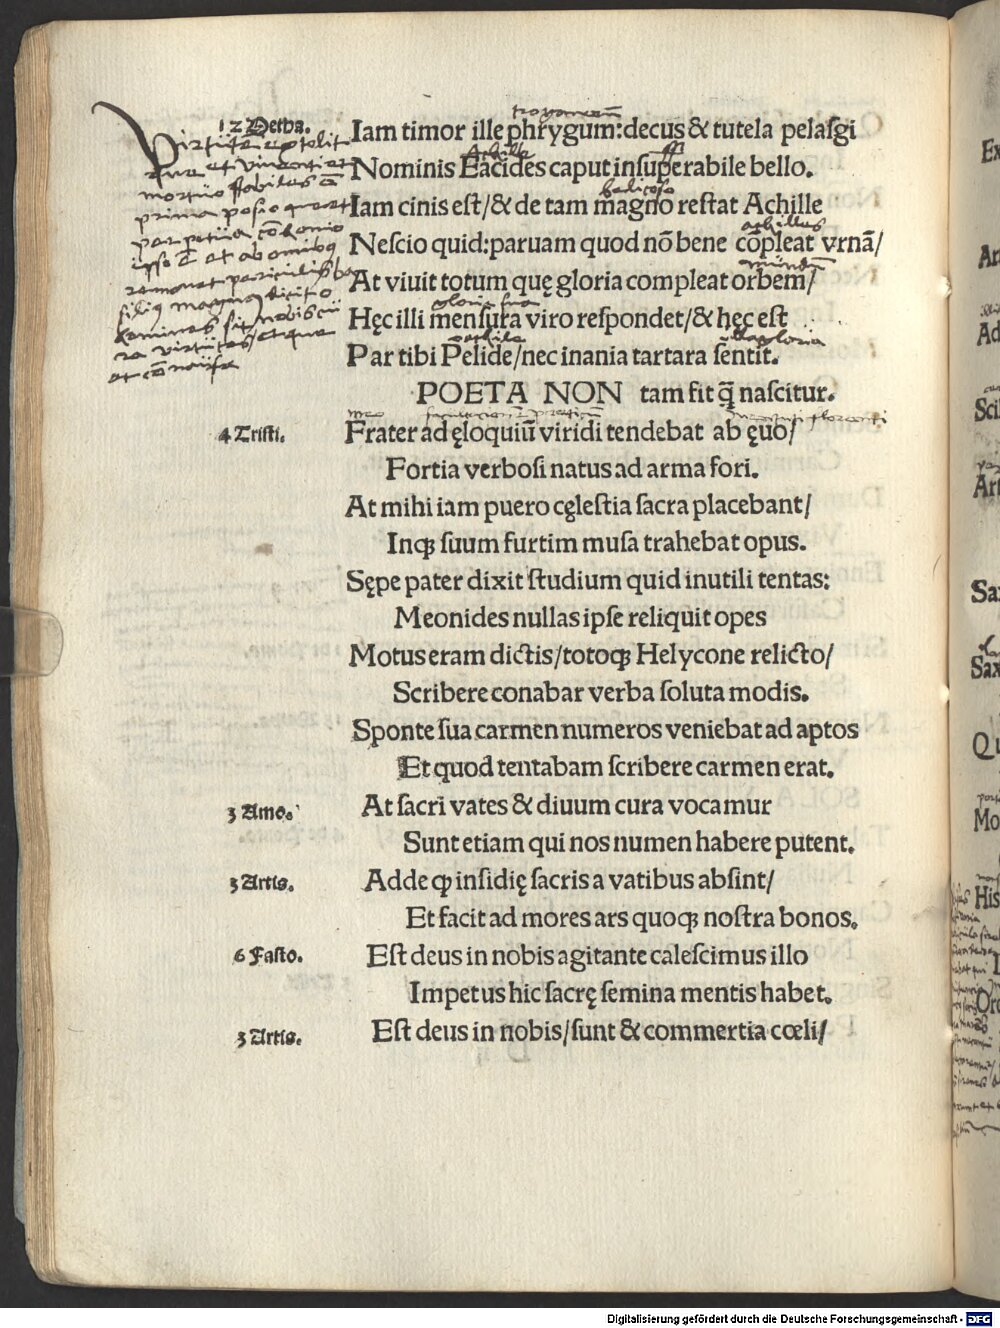 troyanorum
12 Metha. Iam timor ille phrygum:decus & tutela pelaſgi
Achilles
Nominis Eacides caput inſuperabile bello.
belicoso
Iam cinis eſt/& de tam magno reſtat Achille
achilles
Neſcio quid:paruam quod nō bene cōpleat vrnā/
mūndū
At viuit totum quę gloria compleat orbem/
gloria sua
Hęc illi menſura viro reſpondet/& hęc eſt
gloria
Par tibi Pelide/nec inania tartara ſentit.
POETA NON tam fit q̄ naſcitur.
meo
4 Triſti. Frater ad ęloquiū viridi tendebat ab ęuo/
Fortia verboſi natus ad arma fori.
At mihi iam puero cęleſtia ſacra placebant/
Inqꝫ ſuum furtim muſa trahebat opus.
Sępe pater dixit ſtudium quid inutili tentas:
Meonides nullas ipſe reliquit opes
Motus eram dictis/totoqꝫ Helycone relicto/
Scribere conabar verba ſoluta modis.
Sponte ſua carmen numeros veniebat ad aptos
Et quod tentabam ſcribere carmen erat.
3 Amo. At ſacri vates & diuum cura vocamur
Sunt etiam qui nos numen habere putent.
3 Artis. Adde ꝙ inſidię ſacris a vatibus abſint/
Et facit ad mores ars quoqꝫ noſtra bonos.
6 Faſto. Eſt deus in nobis agitante caleſcimus illo
Impetus hic ſacrę ſemina mentis habet.
3 Artis. Eſt deus in nobis/ſunt & commertia cœli/
Digitalisierung gefördert durch die Deutsche Forschungsgemeinschaft - DFG